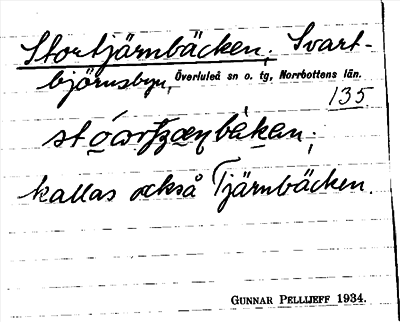 Stortjärnbäcken; Svart-
björnsbyn, Överluleå sn o. tg, Norrbottens län.
135
kallas också Tjärnbäcken.
GUNNAR PELLIJEFF 1934.